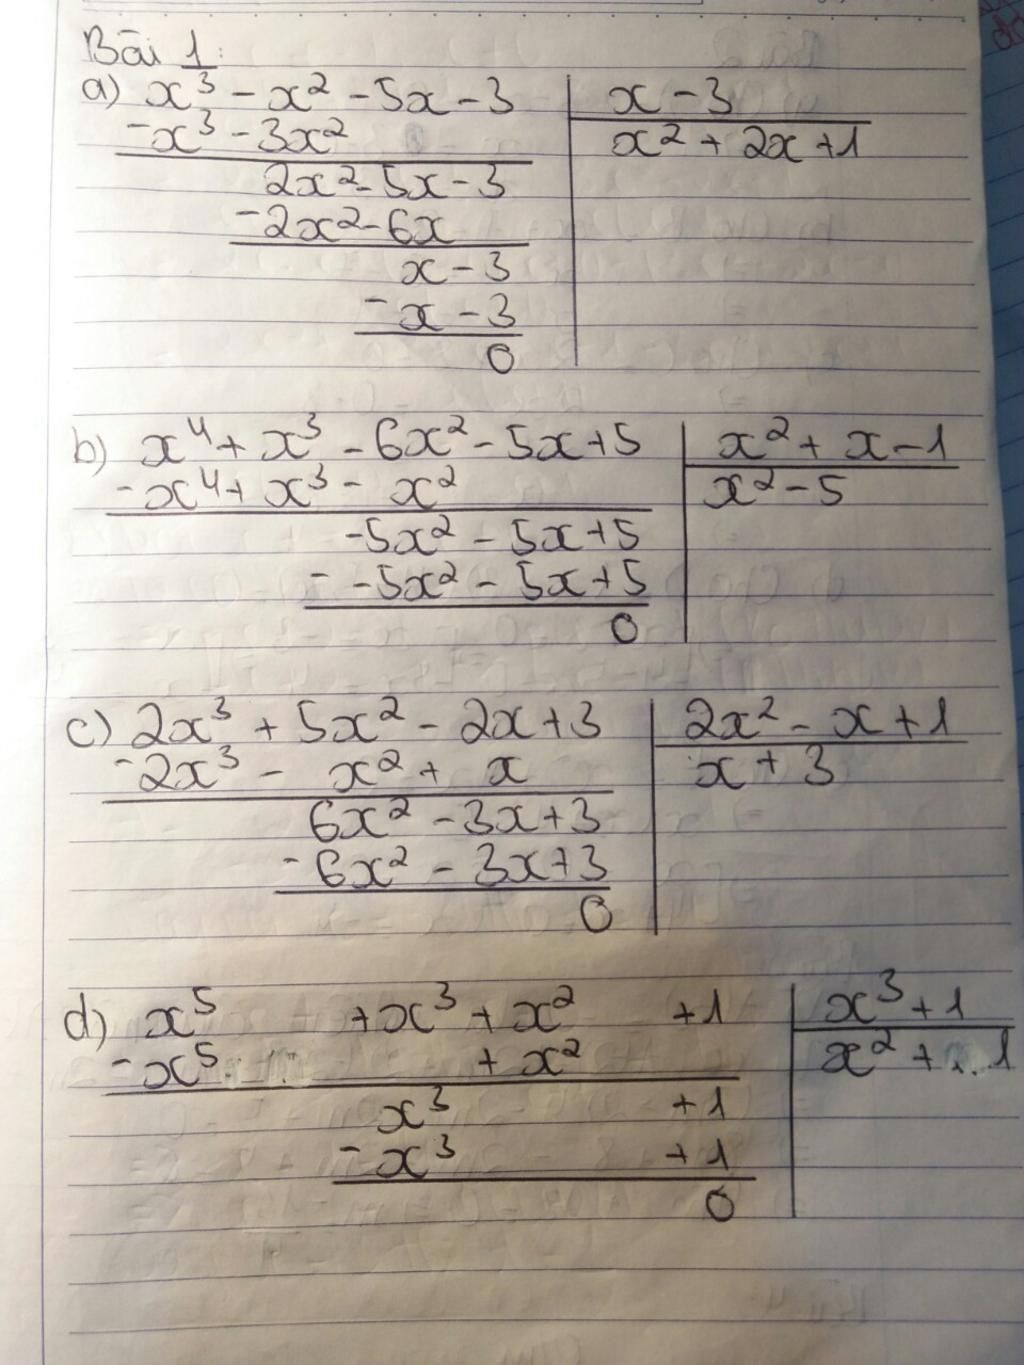 Bài 1:
a) x³ - x² - 5x - 3 | x - 3
- x³ - 3x² | x² + 2x + 1
2x² - 5x - 3
- 2x² - 6x
x - 3
- x - 3
0
b) x⁴ + x³ - 6x² - 5x + 5 | x² + x - 1
- x⁴ + x³ - x² | x² - 5
-5x² - 5x + 5
- -5x² - 5x + 5
0
c) 2x³ + 5x² - 2x + 3 | 2x² - x + 1
- 2x³ - x² + x | x + 3
6x² - 3x + 3
- 6x² - 3x + 3
0
d) x⁵ + x³ + x² + 1 | x³ + 1
- x⁵ + x² | x² + 1
x³ + 1
- x³ + 1
0